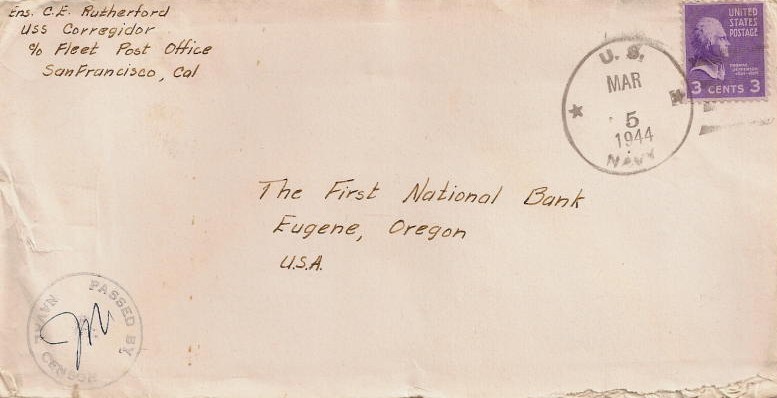 Ens. C.E. Rutherford
USS Corregidor
c/o Fleet Post Office
San Francisco, Cal
U.S.
MAR
5
1944
NAVY
UNITED
STATES
POSTAGE
THOMAS JEFFERSON
3 CENTS 3
The First National Bank
Eugene, Oregon
U.S.A.
PASSED BY
NAVAL
CENSOR